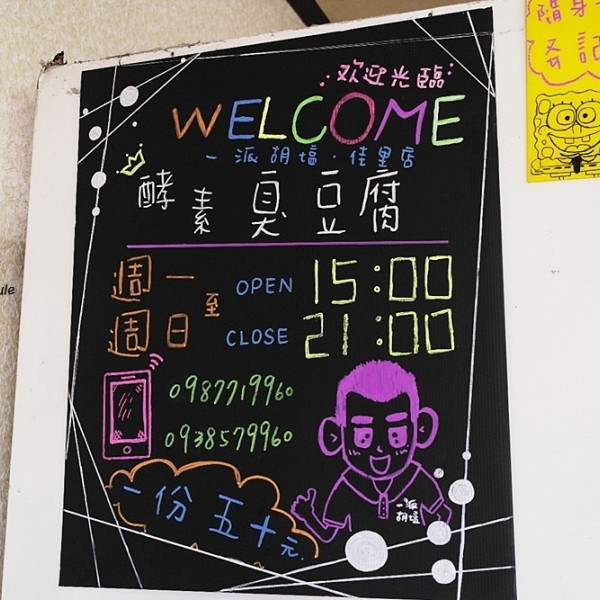 欢迎光臨
WELCOME
一派胡塭·佳里店
酵素臭豆腐
週一 至 週日
OPEN 15:00
CLOSE 21:00
0987719960
0938579960
一份五十元.
一派
胡塭
隨身
ule